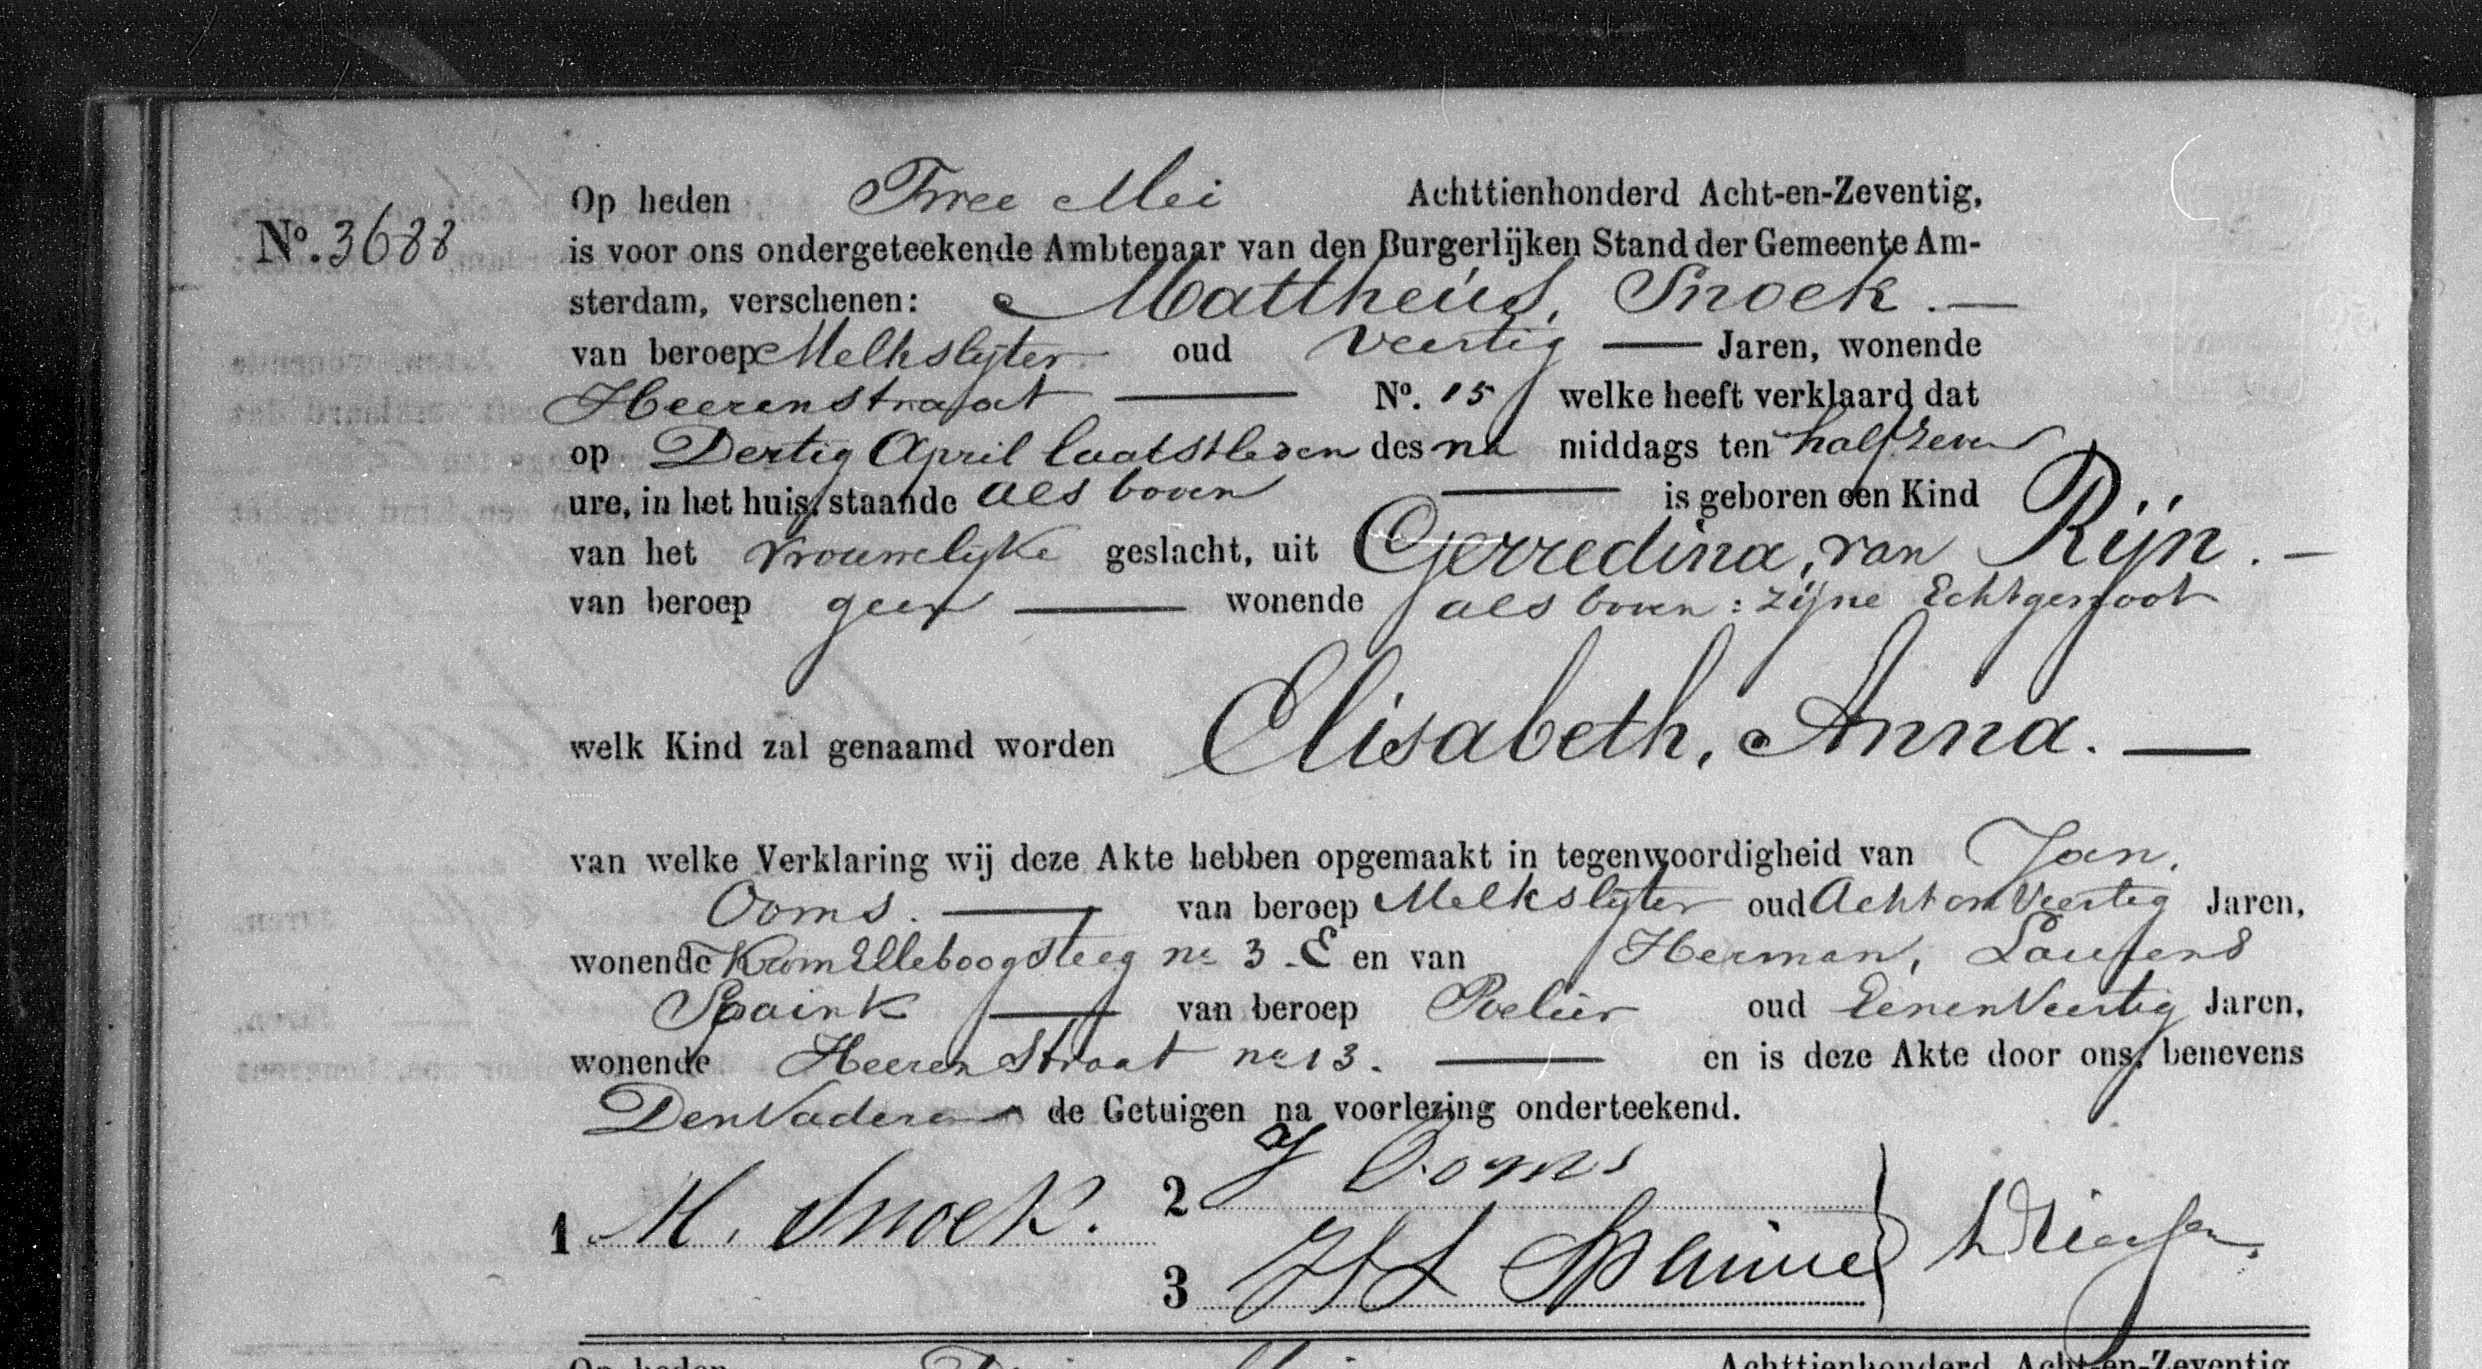 Op heden Twee Mei Achttienhonderd Acht-en-Zeventig,
No. 3688 is voor ons ondergeteekende Ambtenaar van den Burgerlijken Stand der Gemeente Am-
sterdam, verschenen: Mattheus, Snoek. —
van beroep Melkslyter oud Veertig — Jaren, wonende
Heerenstraat — No. 15 welke heeft verklaard dat
op Dertig April laatstleden des na middags ten half zeven
ure, in het huis, staande als boven — is geboren een Kind
van het vrouwelyke geslacht, uit Gerredina, van Rijn. —
van beroep geen — wonende als boven: zijne Echtgenoot
welk Kind zal genaamd worden Elisabeth, Anna. —
van welke Verklaring wij deze Akte hebben opgemaakt in tegenwoordigheid van Jan,
Ooms. — van beroep Melkslyter oud Acht en Veertig Jaren,
wonende Krom Elleboogsteeg no 3 E en van Herman, Laurens
Spaink — van beroep Poelier oud Eenen Veertig Jaren,
wonende Heeren Straat no 13. — en is deze Akte door ons, benevens
Den Vader en de Getuigen na voorlezing onderteekend.
1 M. Snoek. 2 J Ooms
3 H L Spaink
Op heden Achttienhonderd Acht-en-Zeventig,